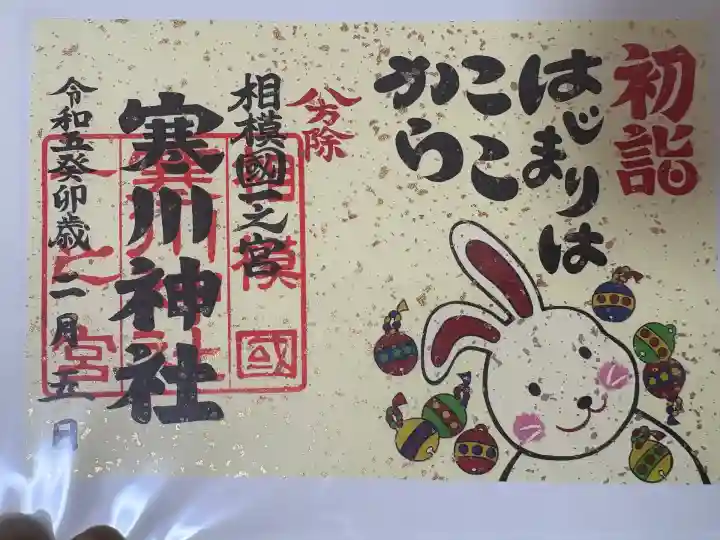 初詣
はじまりは
ここ
から
八方除
相模國一之宮
寒川神社
令和五癸卯歳 二月 五 日
相模國
寒川神社
一之宮